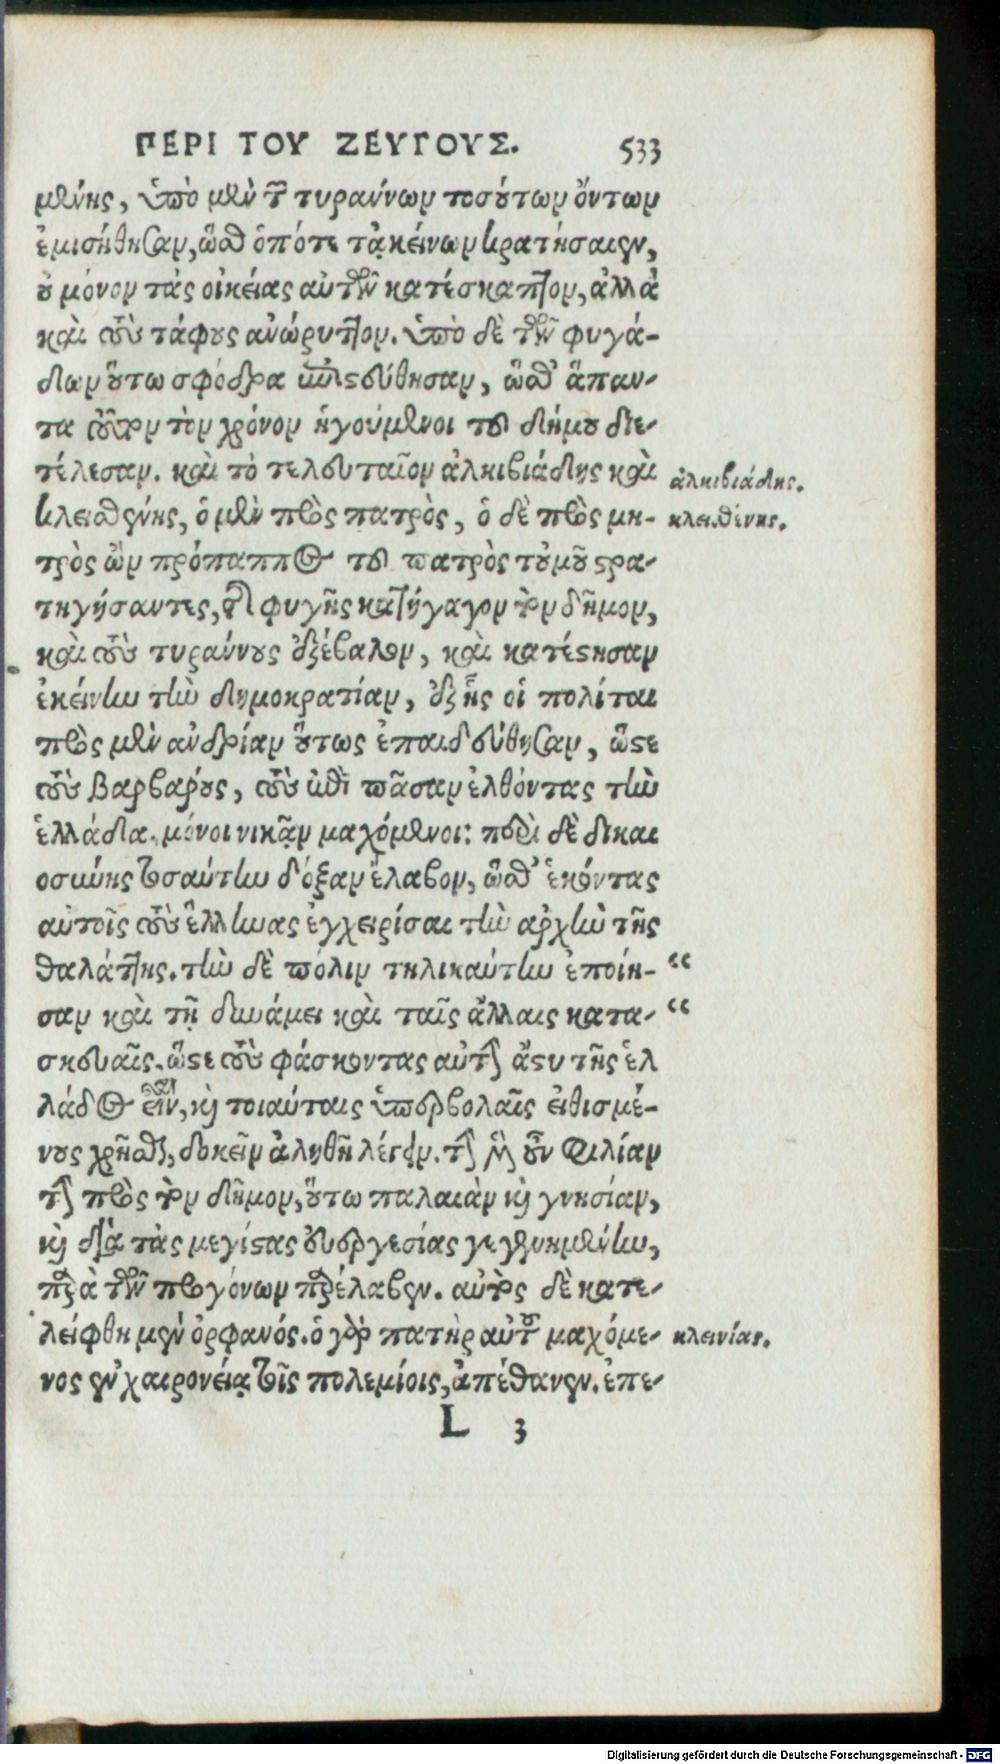 ΠΕΡΙ ΤΟΥ ΖΕΥΓΟΥΣ. 533
μένης, ὑπὸ μὲν τῶν τυράννων τοσούτων ὄντων
ἐμισήθησαν, ὥσθ' ὁπότε τἀκείνων κρατήσαιεν,
οὐ μόνον τὰς οἰκείας αὐτῶν κατέσκαπτον, ἀλλὰ
καὶ τοὺς τάφους ἀνώρυττον. ὑπὸ δὲ τῶν φυγά-
δων οὕτω σφόδρα ἐπιστεύθησαν, ὥσθ' ἅπαν-
τα τοῦτον τὸν χρόνον ἡγούμενοι τοῦ δήμου διε-
τέλεσαν. καὶ τὸ τελευταῖον ἀλκιβιάδης καὶ
ἀλκιβιάδης.
κλεισθένης, ὁ μὲν πρὸς πατρὸς, ὁ δὲ πρὸς μη-
κλεισθένης.
τρὸς ὢν πρόπαππος τοῦ πατρὸς τοὐμοῦ στρα-
τηγήσαντες, τῆς φυγῆς κατήγαγον τὸν δῆμον,
καὶ τοὺς τυράννους ἐξέβαλον, καὶ κατέστησαν
ἐκείνην τὴν δημοκρατίαν, ἐξ ἧς οἱ πολίται
πρὸς μὲν ἀνδρίαν οὕτως ἐπαιδεύθησαν, ὥστε
τοὺς βαρβάρους, τοὺς ἐπὶ πᾶσαν ἐλθόντας τὴν
ἑλλάδα, μόνοι νικᾷν μαχόμενοι: περὶ δὲ δικαι
οσύνης τοσαύτην δόξαν ἔλαβον, ὥσθ' ἑκόντας
αὐτοῖς τοὺς ἕλληνας ἐγχειρίσαι τὴν ἀρχὴν τῆς
θαλάττης. τὴν δὲ πόλιν τηλικαύτην ἐποίη- “
σαν καὶ τῇ δυνάμει καὶ ταῖς ἄλλαις κατα- “
σκευαῖς. ὥστε τοὺς φάσκοντας αὐτὴν ἄστυ τῆς ἑλ
λάδος εἶναι, καὶ τοιαύταις ὑπερβολαῖς εἰθισμέ-
νους χρῆσθαι, δοκεῖν ἀληθῆ λέγειν. τὴν μὲν οὖν φιλίαν
τὴν πρὸς τὸν δῆμον, οὕτω παλαιὰν καὶ γνησίαν,
καὶ διὰ τὰς μεγίστας εὐεργεσίας γεγενημένην,
παρὰ τῶν προγόνων παρέλαβεν. αὐτὸς δὲ κατε-
λείφθη μὲν ὀρφανός. ὁ γὰρ πατὴρ αὐτοῦ μαχόμε-
κλεινίας.
νος ἐν χαιρονείᾳ τοῖς πολεμίοις, ἀπέθανεν. ἐπε-
L 3
Digitalisierung gefördert durch die Deutsche Forschungsgemeinschaft - DFG